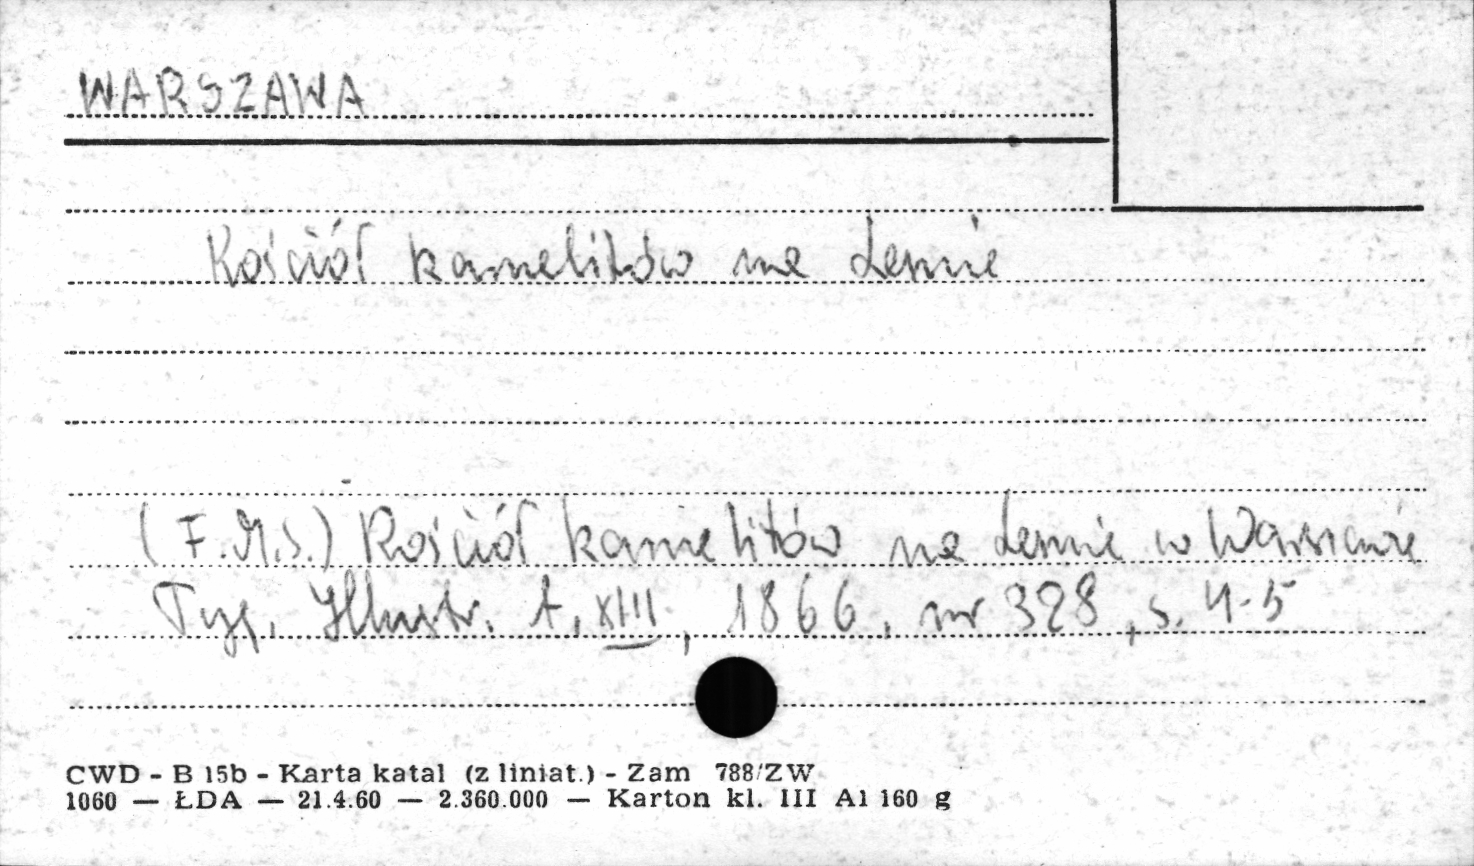 WARSZAWA
Kościół kamelitów na Lesnie
(F.M.S.) Kościół kamelitów na Lesnie w Warszawie
Tyg. Illustr. t. XIII, 1866, nr 328, s. 4-5
CWD - B 15b - Karta katal (z liniat.) - Zam 788/ZW
1060 — ŁDA — 21.4.60 — 2.360.000 — Karton kl. III A1 160 g